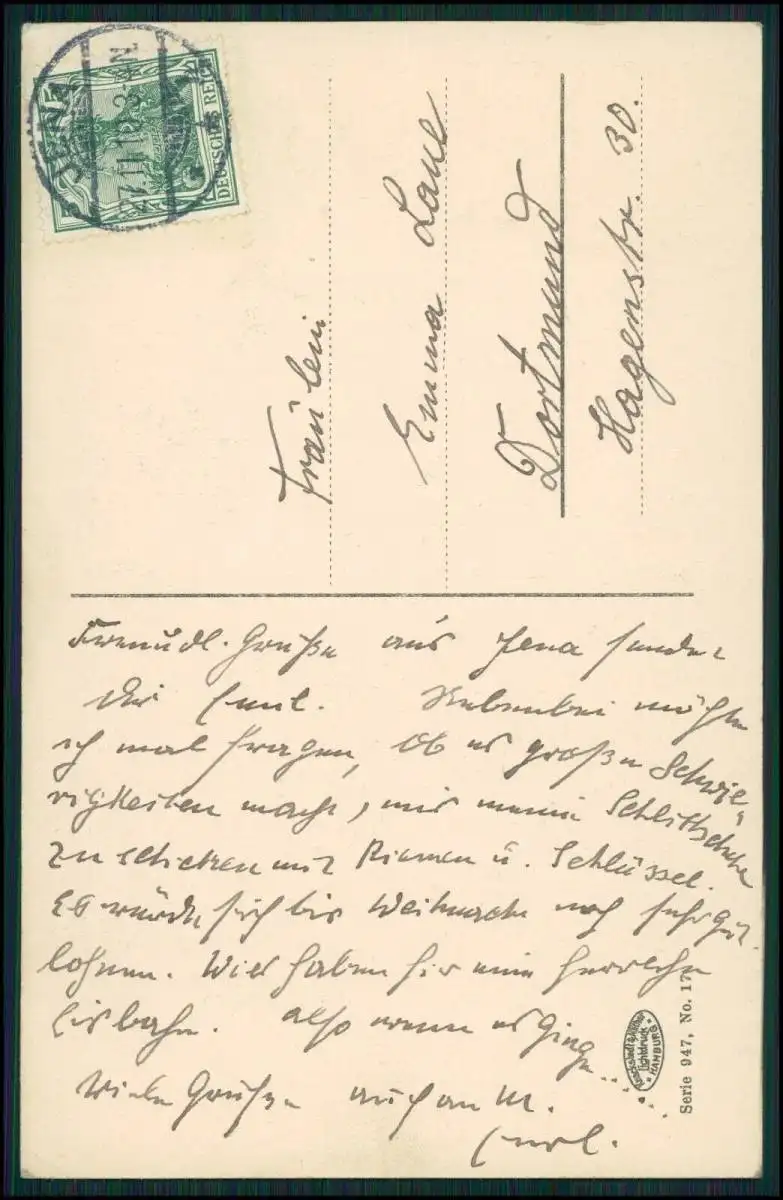 JENA
DEUTSCHES REICH
Fräulein
Emma Laue
Dortmund
Hagenstr. 30.
Freundl. Grüße aus Jena sendet
Dir Emil. Nebenbei möchte
ich mal fragen, ob es große Schwie„
rigkeiten macht, mir meine Schlittschuhe
zu schicken mit Riemen u. Schlüssel.
Es würde sich bis Weihnacht noch sehr gut
lohnen. Wir haben hier eine herrliche
Eisbahn. Also wenn es ginge......
Viele Grüße auch an M.
HAMBURG
Lichtdruck
Serie 947, No. 17